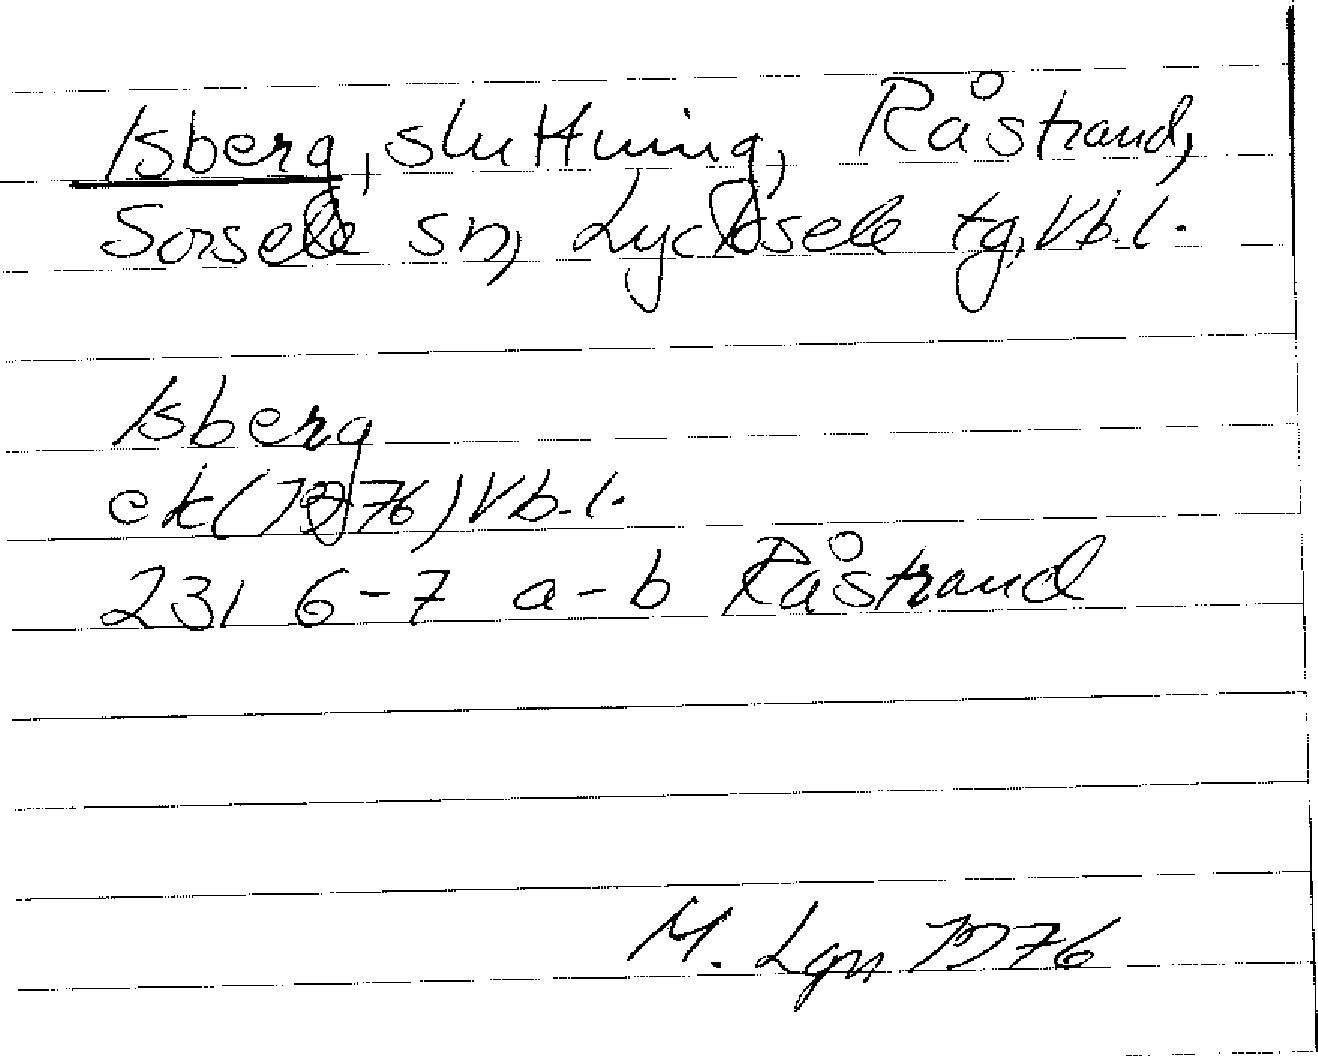 Isberg, sluttning, Råstrand,
Sorsele sn, Lycksele tg, Vb.l.
Isberg
ek (1976) Vb.l.
231 6-7 a-b Råstrand
M. Lgn 1976